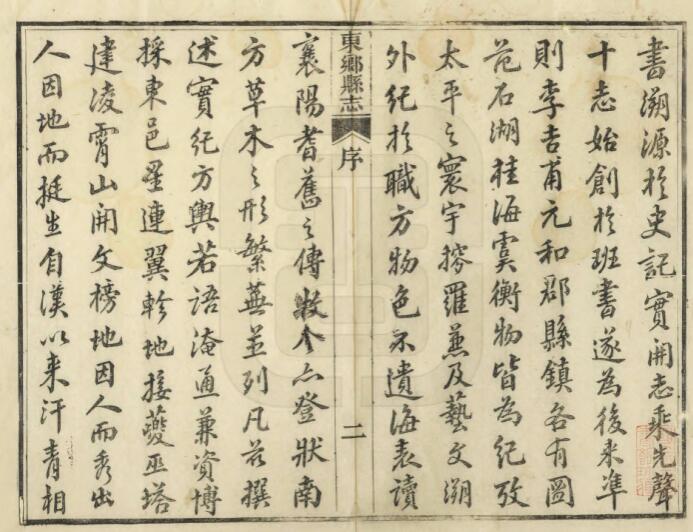 書溯源於史記實開志乘先聲
十志始創於班書遂為後來準
則李吉甫元和郡縣鎮各有圖
范石湖桂海虞衡物皆為紀攷
太平之寰宇搜羅兼及藝文溯
外紀於職方物色不遺海表讀
東鄉縣志
序
二
襄陽耆舊之傳數今亦登狀南
方草木之形繁蕪並列凡茲撰
述實紀方輿若語淹通兼資博
採東邑星連翼軫地接夔巫塔
建凌霄山開文榜地因人而秀出
人因地而挺生自漢以来汗青相